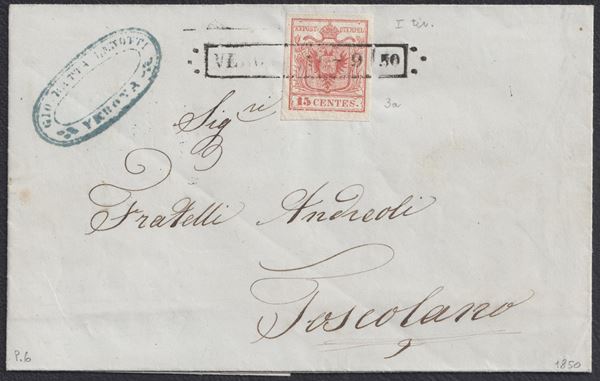 I tir.
GIO. BATTA ZANOTTI
VERONA
KKPOST-STEMPEL
9 50
15 CENTES.
3a
Sig ri
Fratelli Andreoli
Toscolano
P.6
1850